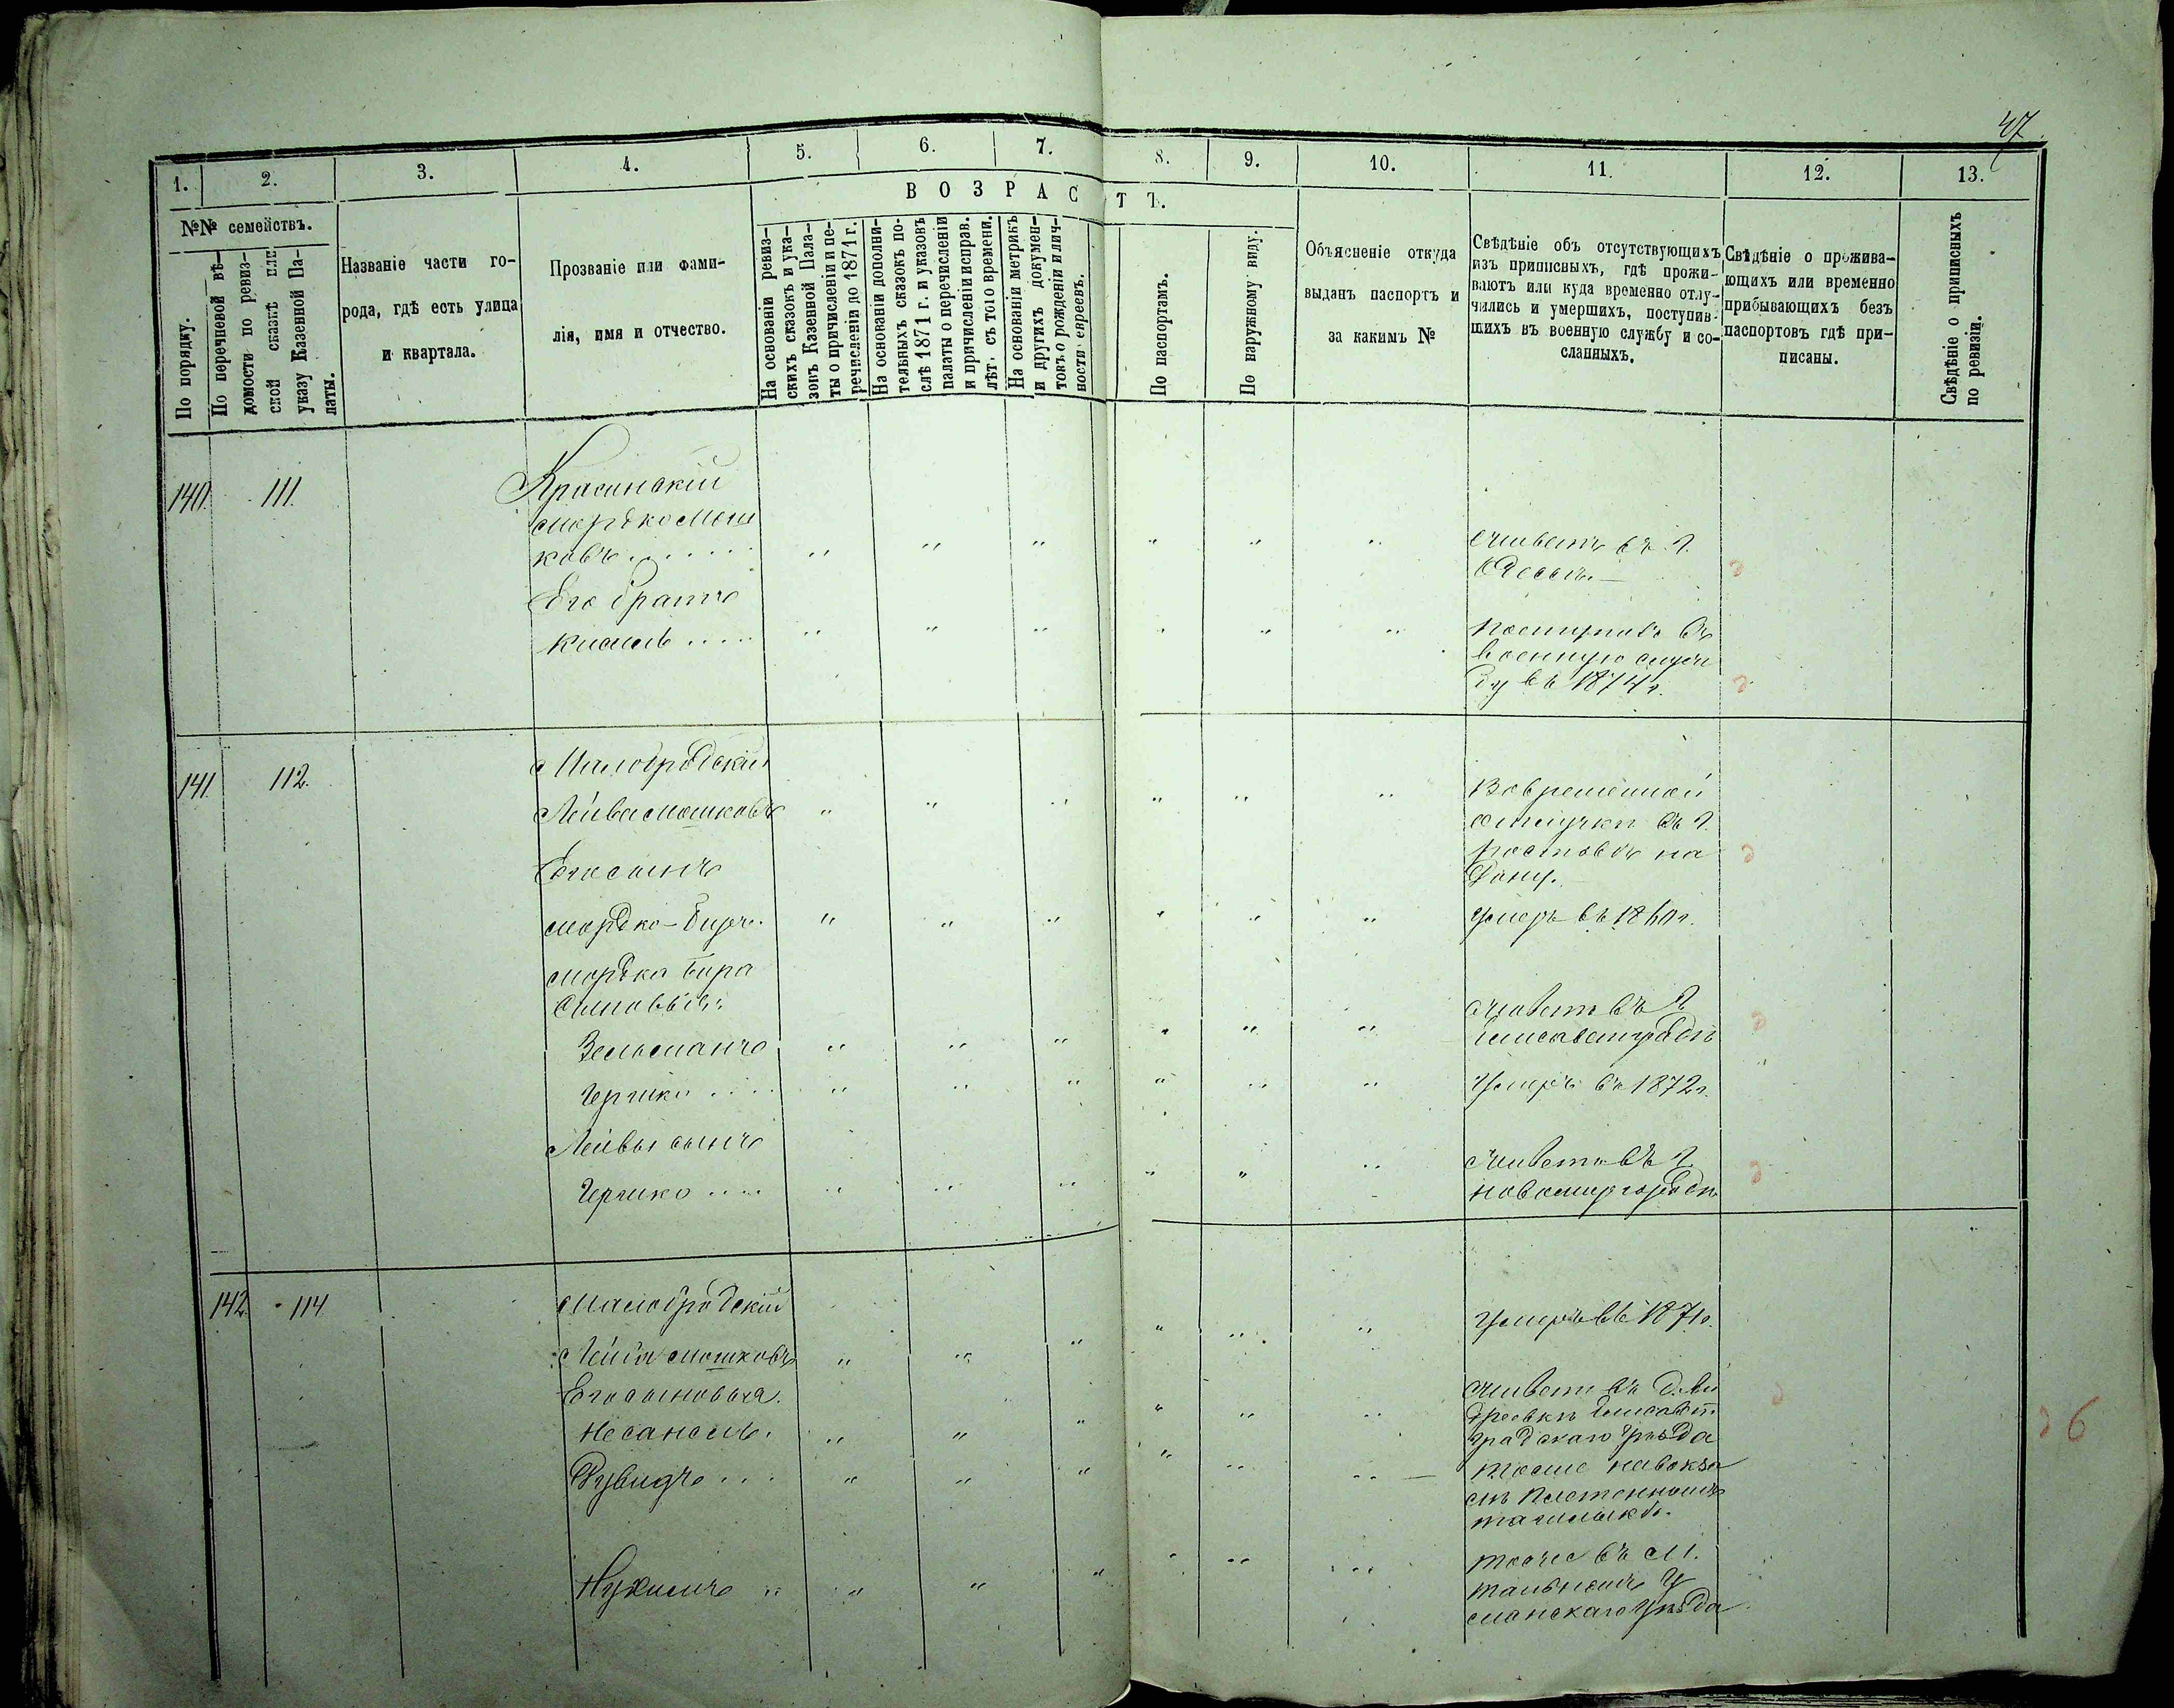 47
1. 2. 3. 4. 5. 6. 7. 8. 9. 10. 11. 12. 13.
№№ семействъ.
По порядку.
По перечневой вѣ-
домости по ревиз-
ской сказкѣ или
указу Казенной Па-
латы.
Названіе части го-
рода, гдѣ есть улица
и квартала.
Прозваніе или фами-
лія, имя и отчество.
ВОЗРАСТЪ.
На основаніи ревиз-
скихъ сказокъ и ука-
зовъ Казенной Пала-
ты о причисленіи и пе-
речисленіи до 1871 г.
На основаніи дополни-
тельныхъ сказокъ по-
слѣ 1871 г. и указовъ
палаты о перечисленіи
и причисленіи исправ.
лѣт. съ того времени.
На основаніи метрикъ
и другихъ докумен-
товъ о рожденіи и лич-
ности евреевъ.
По паспортамъ.
По наружному виду.
Объясненіе откуда
выданъ паспортъ и
за какимъ №
Свѣдѣніе объ отсутствующихъ
изъ приписныхъ, гдѣ прожи-
ваютъ или куда временно отлу-
чились и умершихъ, поступив-
шихъ въ военную службу и со-
сланныхъ.
Свѣдѣніе о прожива-
ющихъ или временно
прибывающихъ безъ
паспортовъ гдѣ при-
писаны.
Свѣдѣніе о приписныхъ
по ревизіи.
140. 111.
Красинскій
Мордко Мош
ковъ
живетъ въ г.
Одессѣ.
Его братъ
Кисиль
поступилъ въ
военную служ
бу въ 1874 г.
141. 112.
Малобродскій
Лейва Мошковъ
Во временной
отлучки въ г.
Ростовѣ на
Дону.
Его сынъ
Мордко-Биръ
умеръ въ 1860 г.
Мордка Бира
сыновья:
Зельманъ
живетъ въ г.
Елисаветградѣ
Гершко
умеръ въ 1872 г.
Лейвы сынъ
Гершко
живетъ въ г.
Новомиргородѣ
142. 114
Малобродскій
Лейба Мошковъ
умеръ въ 1871 г.
Его сыновья.
Несанель
живетъ въ д. Ан
дреевкѣ Елисавет.
градскаго уѣзда
Рувидъ
тоже на вокза
лѣ Плетенномъ
ташлыкѣ.
Нухимъ
тоже въ м.
Тальномъ У
манскаго уѣзда
6